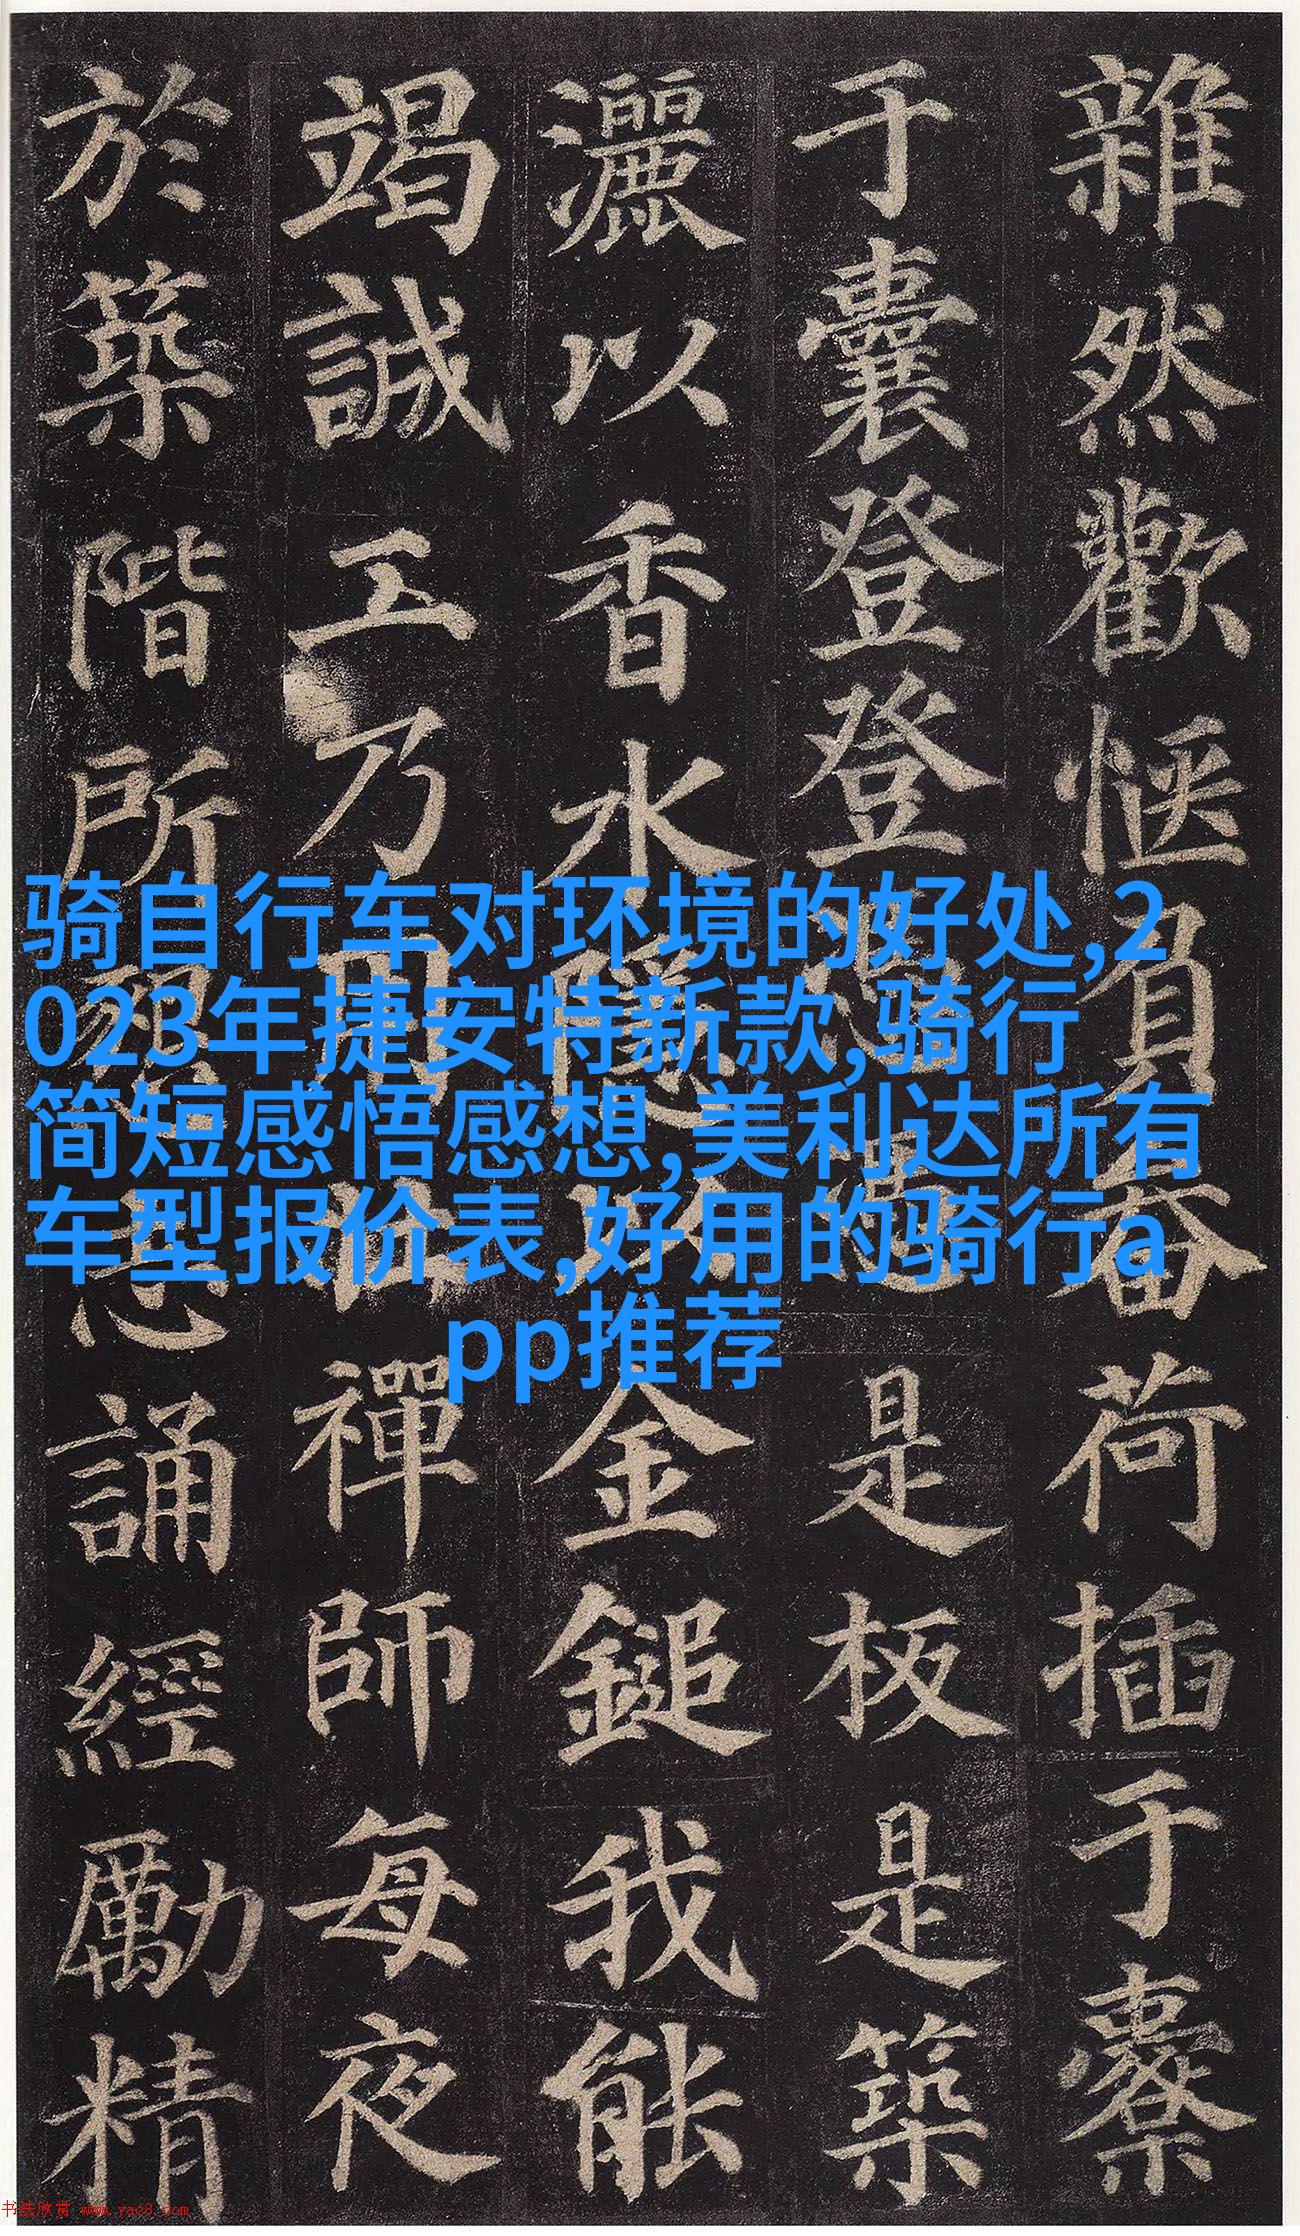 雜然歡愜負畚荷插于橐
于囊登登憑憑是板是築
灑以香水隱以金鎚我能
竭誠工乃用壯禪師每夜
於築階所懇志誦經勵精
骑自行车对环境的好处,2
023年捷安特新款,骑行
简短感悟感想,美利达所有
车型报价表,好用的骑行a
pp推荐
书法欣赏 www.yac8.com